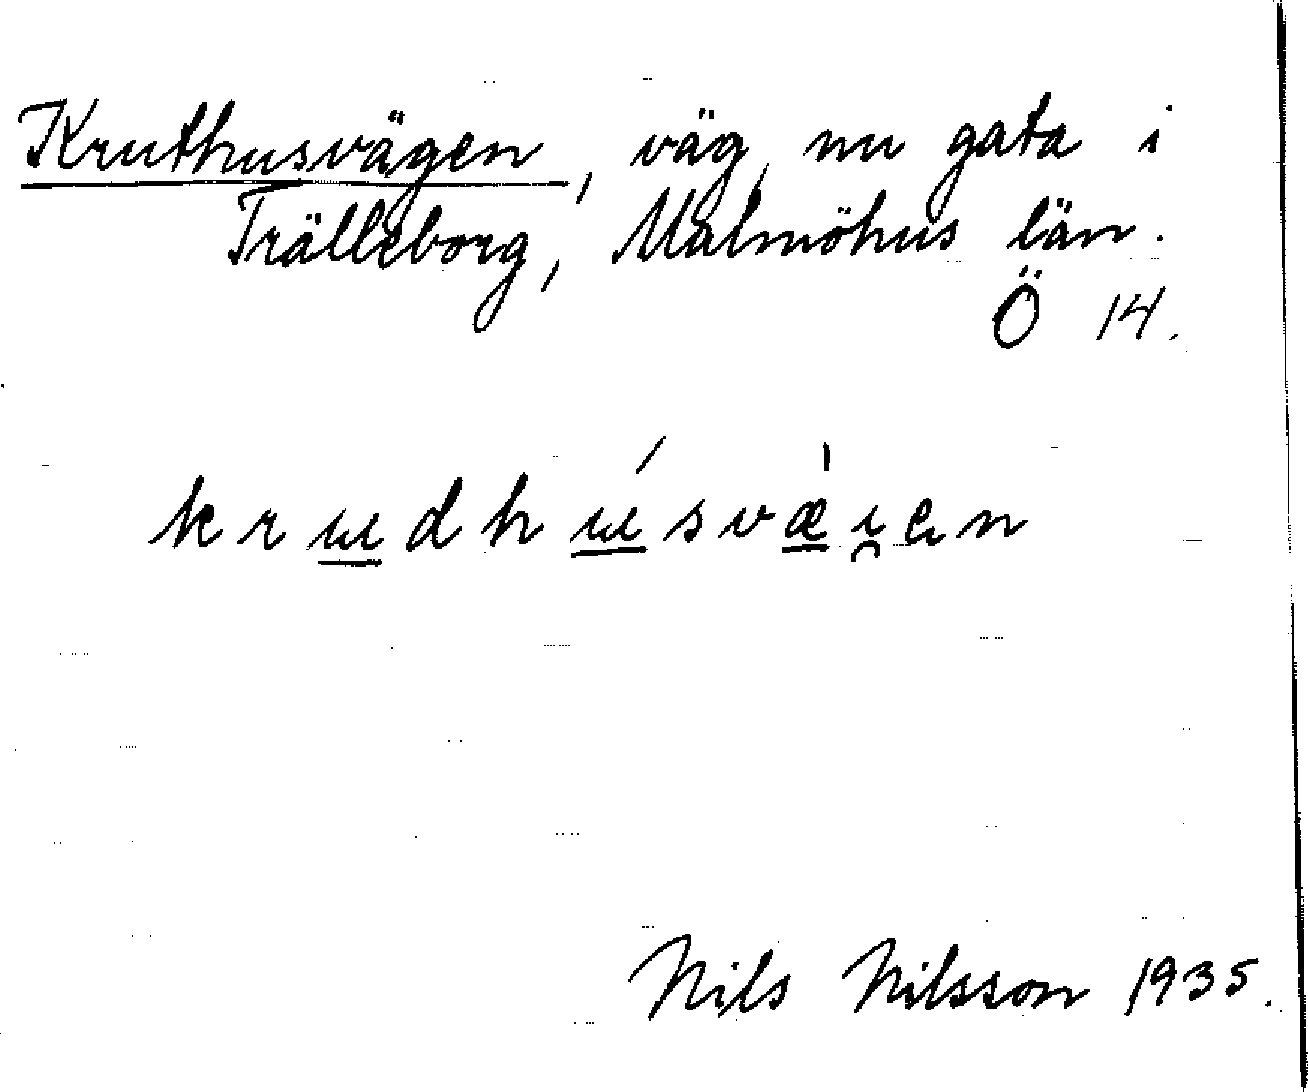 Kruthusvägen, väg, nu gata i
Trälleborg, Malmöhus län.
Ö 14.
krudhúsvǽi̯en
Nils Nilsson 1935.